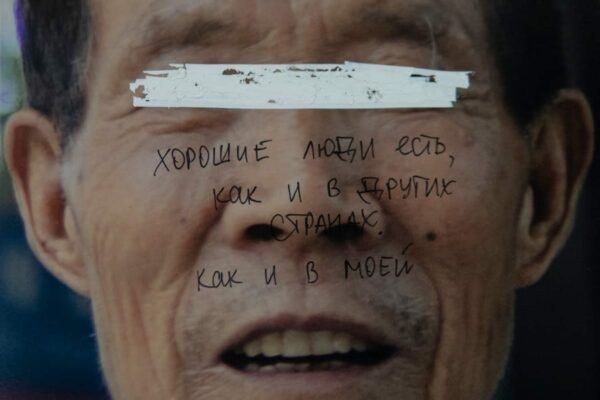 ХОРОШИЕ ЛЮДИ ЕСТЬ,
КАК И В ДРУГИХ
СТРАНАХ.
КАК И В МОЕЙ